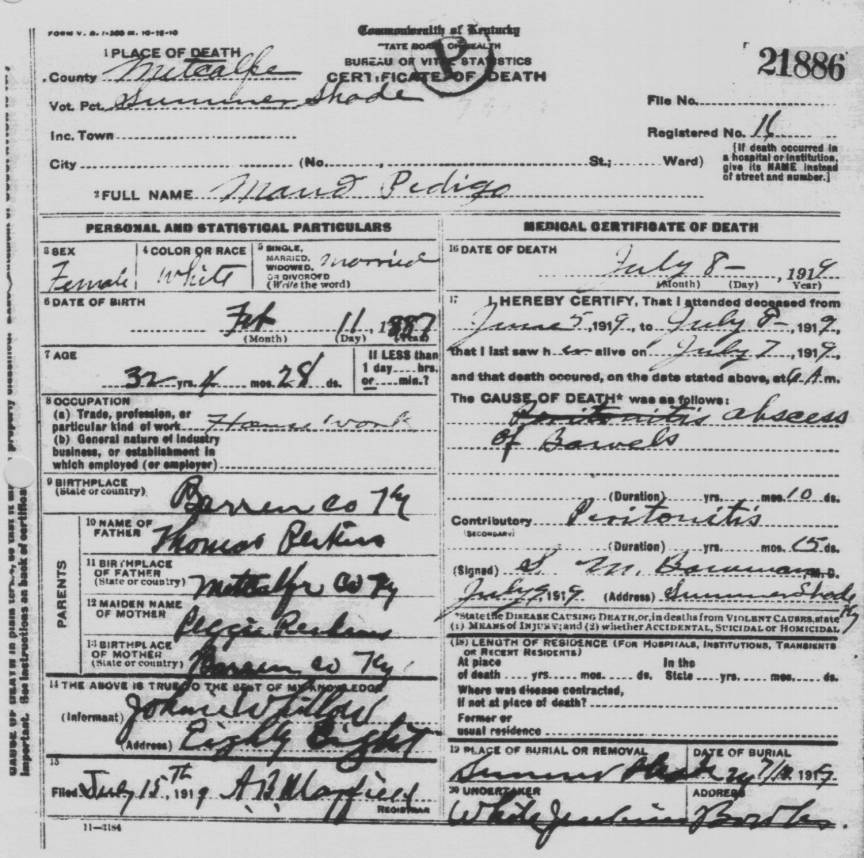 FORM V. S. 1-
Commonwealth of Kentucky
STATE BOARD OF HEALTH
BUREAU OF VITAL STATISTICS
CERTIFICATE OF DEATH
B
21886
1 PLACE OF DEATH
County Metcalfe
Vot. Pct. Summer Shade
Inc. Town
City (No. , St.; Ward)
File No.
Registered No. 16
[If death occurred in a hospital or institution, give its NAME instead of street and number.]
2 FULL NAME Maud Pedigo
PERSONAL AND STATISTICAL PARTICULARS
3 SEX Female
4 COLOR OR RACE White
5 SINGLE, MARRIED, WIDOWED, OR DIVORCED (Write the word) Married
6 DATE OF BIRTH
Feb 11, 1887
(Month) (Day) (Year)
7 AGE
32 yrs. 4 mos. 28 ds.
If LESS than 1 day hrs. or min.?
8 OCCUPATION
(a) Trade, profession, or
particular kind of work House work
(b) General nature of industry
business, or establishment in
which employed (or employer)
9 BIRTHPLACE
(State or country) Barren Co Ky
PARENTS
10 NAME OF FATHER Thomas Perkins
11 BIRTHPLACE OF FATHER
(State or country) Metcalfe Co Ky
12 MAIDEN NAME OF MOTHER Peggie Perkins
13 BIRTHPLACE OF MOTHER
(State or country) Barren Co Ky.
14 THE ABOVE IS TRUE TO THE BEST OF MY KNOWLEDGE
(Informant) Johnie Whitlow
(Address) Eighty Eight
15
Filed July 15th, 1919 A B Mayfield
REGISTRAR
11-3184
MEDICAL CERTIFICATE OF DEATH
16 DATE OF DEATH
July 8-, 1919
(Month) (Day) Year)
17 I HEREBY CERTIFY, That I attended deceased from
June 5, 1919, to July 8-, 1919,
that I last saw her alive on July 7, 1919,
and that death occured, on the date stated above, at 6 A.m.
The CAUSE OF DEATH* was as follows:
Peritonitis abscess
of Bowels
(Duration) yrs. mos. 10 ds.
Contributory Peritonitis
(SECONDARY)
(Duration) yrs. mos. 15 ds.
(Signed) S. M. Bowman M. D.
July 9, 1919 (Address) Summer Shade Ky
*State the DISEASE CAUSING DEATH, or, in deaths from VIOLENT CAUSES, state
(1) MEANS OF INJURY; and (2) whether ACCIDENTAL, SUICIDAL or HOMICIDAL
(18) LENGTH OF RESIDENCE (FOR HOSPITALS, INSTITUTIONS, TRANSIENTS
OR RECENT RESIDENTS)
At place of death yrs. mos. ds. In the State yrs. mos. ds.
Where was disease contracted,
if not at place of death?
Former or
usual residence
19 PLACE OF BURIAL OR REMOVAL
Summer Shade Ky
DATE OF BURIAL
1919
20 UNDERTAKER
White Jenkins
ADDRESS
Bowles.
CAUSE OF DEATH in plain terms, so that it may
important. See instructions on back of certificate